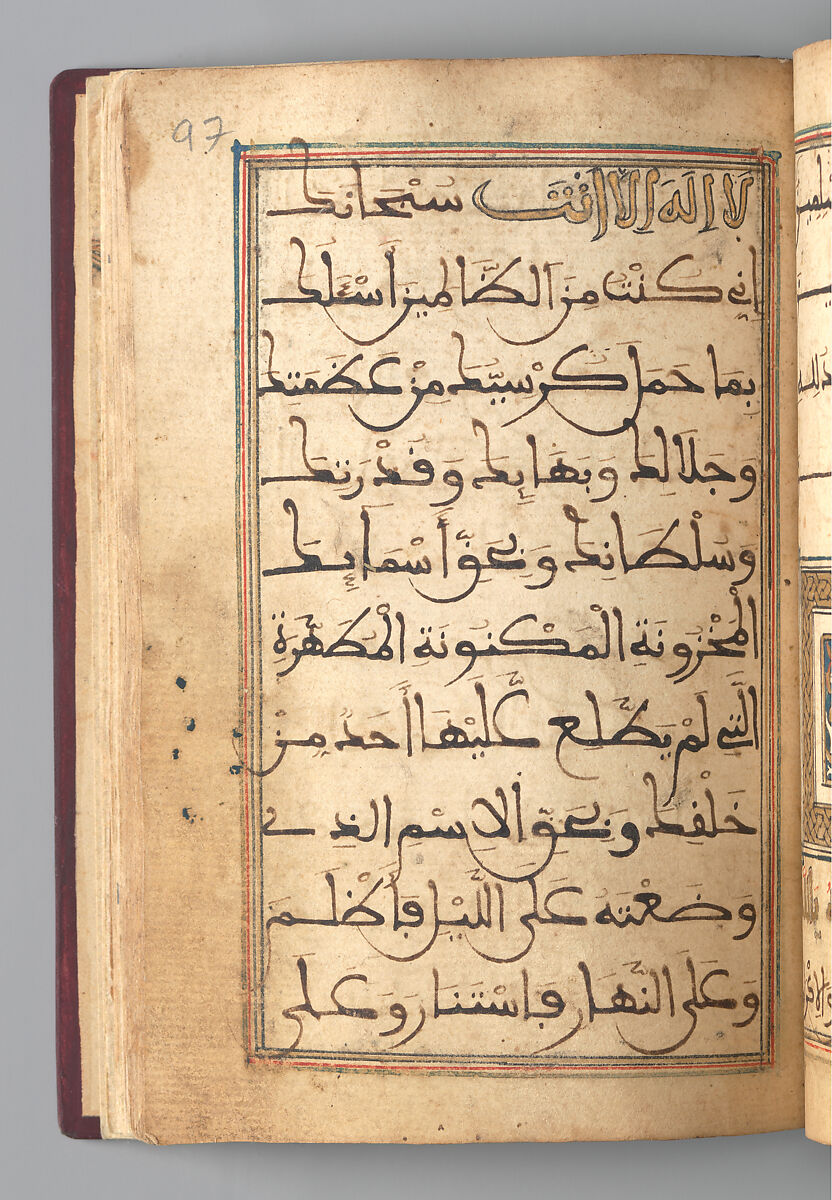 97
لَا إِلَهَ إِلَّا أَنْتَ سُبْحَانَكَ
إِنِّي كُنْتُ مِنَ الظَّالِمِينَ أَسْئَلُكَ
بِمَا حَمَلَ كُرْسِيُّكَ مِنْ عَظَمَتِكَ
وَجَلَالِكَ وَبَهَائِكَ وَقُدْرَتِكَ
وَسُلْطَانِكَ وَبِحَقِّ أَسْمَائِكَ
الْمَخْزُونَةِ الْمَكْنُونَةِ الْمُطَهَّرَةِ
الَّتِي لَمْ يَطَّلِعْ عَلَيْهَا أَحَدٌ مِنْ
خَلْقِكَ وَبِحَقِّ الِاسْمِ الَّذِي
وَضَعْتَهُ عَلَى اللَّيْلِ فَأَظْلَمَ
وَعَلَى النَّهَارِ فَاسْتَنَارَ وَعَلَى